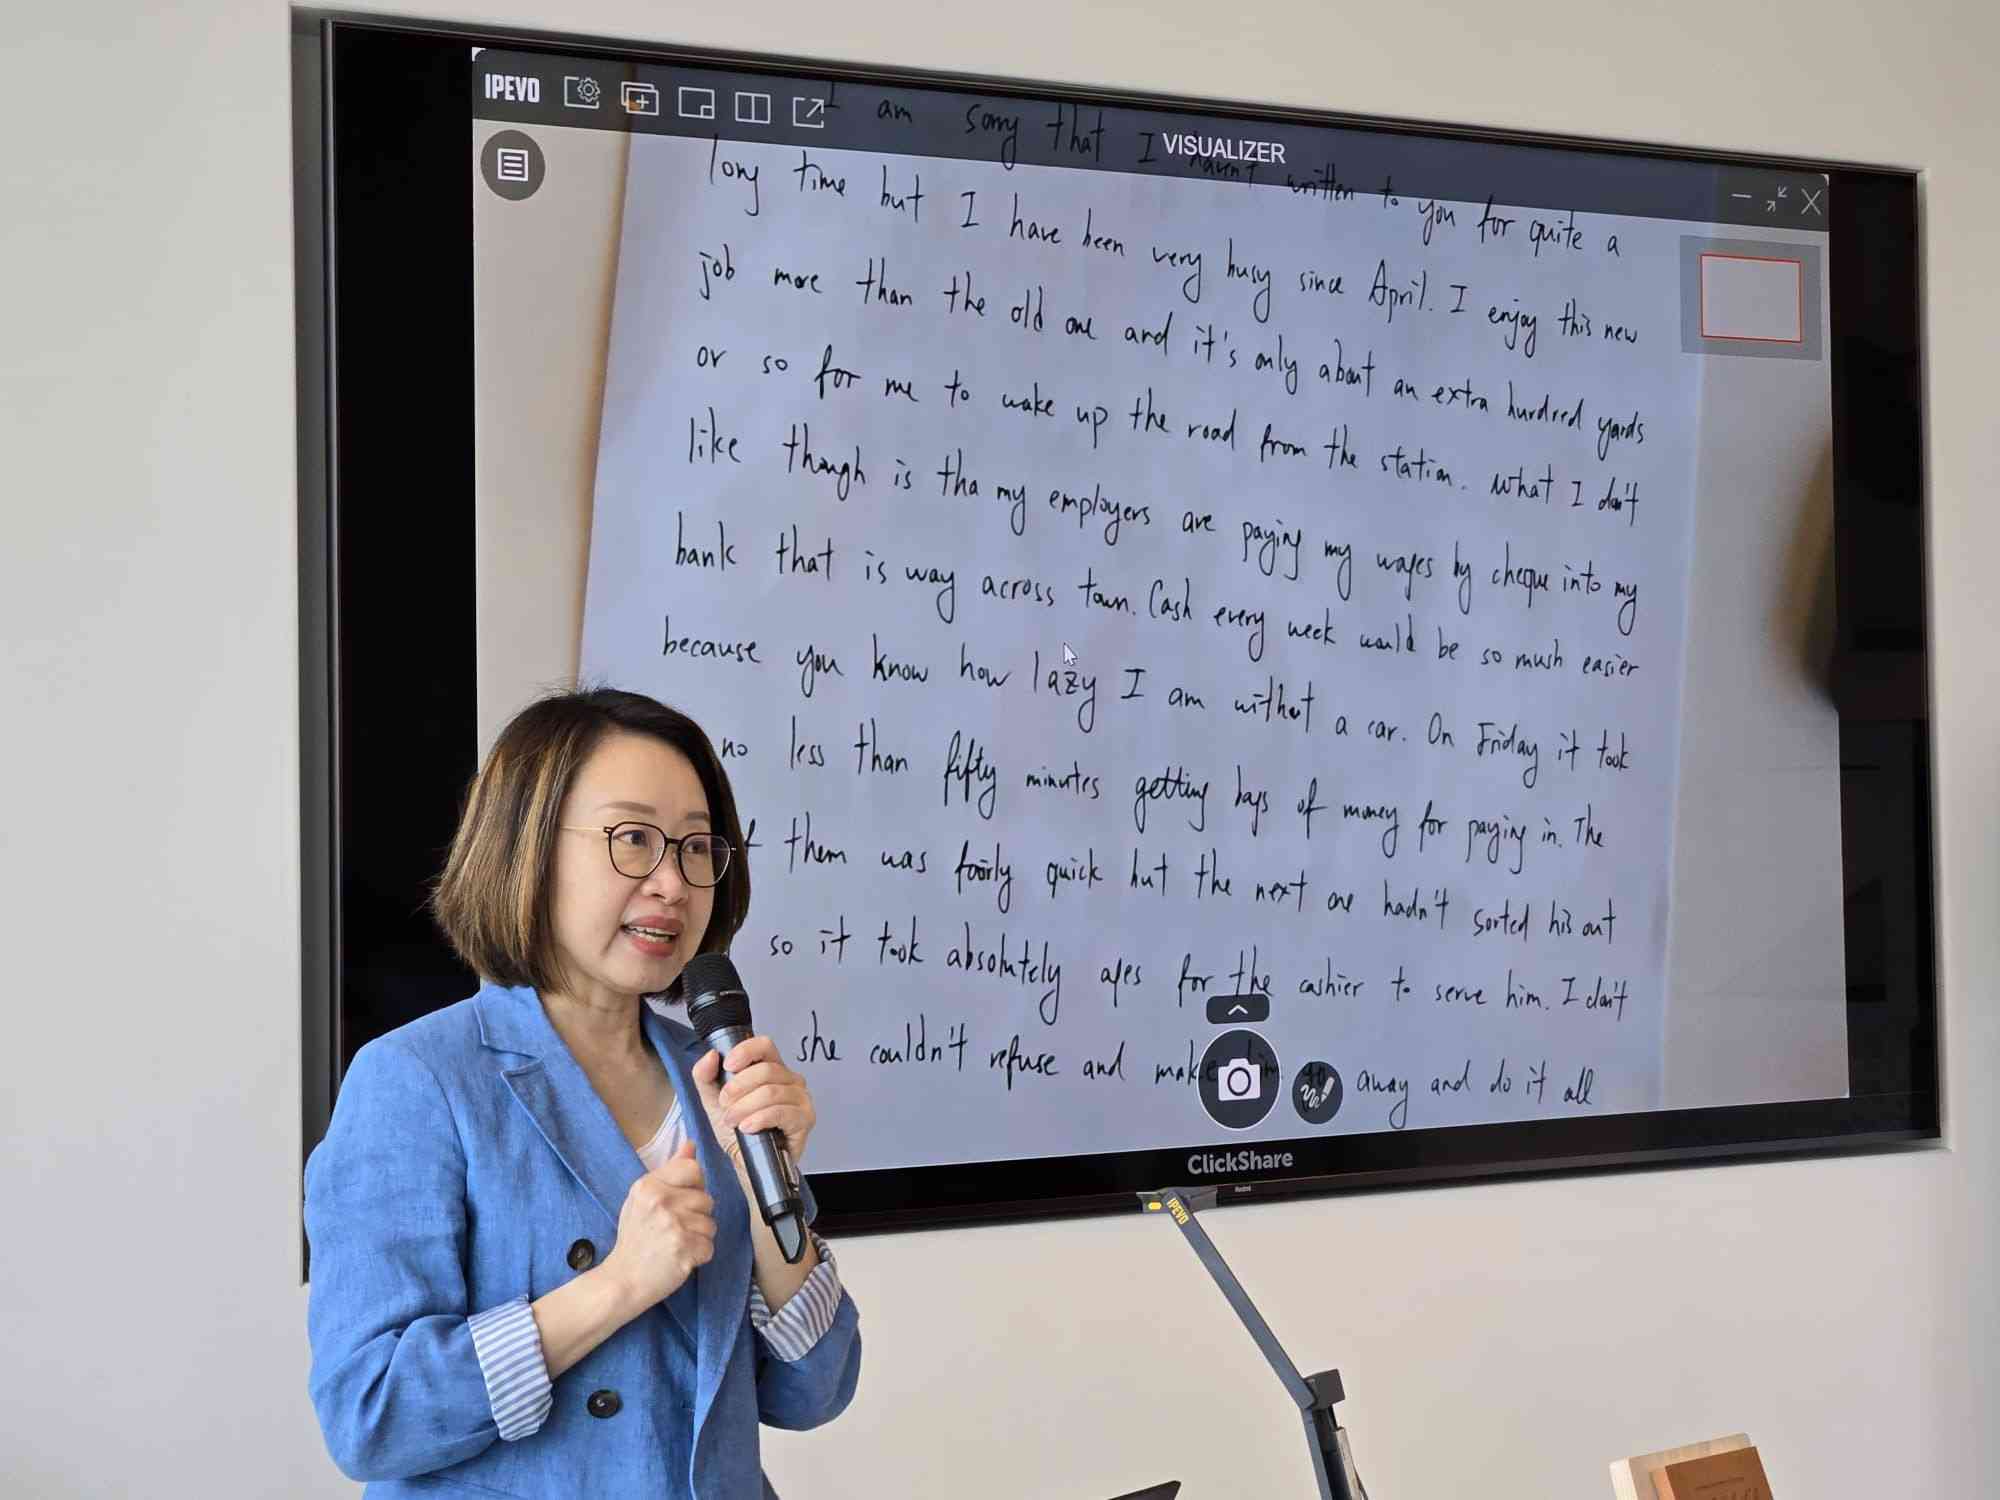 IPEVO
VISUALIZER
I am sorry that I haven't written to you for quite a
long time but I have been very busy since April. I enjoy this new
job more than the old one and it's only about an extra hundred yards
or so for me to wake up the road from the station. What I don't
like though is tha my employers are paying my wages by cheque into my
bank that is way across town. Cash every week would be so mush easier
because you know how lazy I am without a car. On Friday it took
no less than fifty minutes getting bags of money for paying in. The
them was fairly quick but the next one hadn't sorted his out
so it took absolutely ages for the cashier to serve him. I don't
she couldn't refuse and make away and do it all
ClickShare
IPEVO